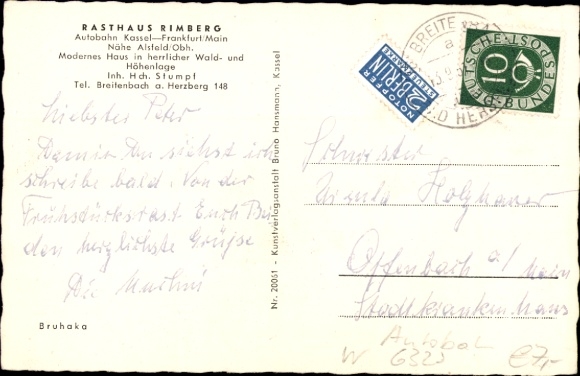 RASTHAUS RIMBERG
Autobahn Kassel—Frankfurt/Main
Nähe Alsfeld/Obh.
Modernes Haus in herrlicher Wald- und
Höhenlage
Inh. Hch. Stumpf
Tel. Breitenbach a. Herzberg 148
Liebster Peter
Damit Du siehst ich
schreibe bald. Von der
Frühstücksrast Euch Bei
den herzlichste Grüße
Die
Bruhaka
Nr. 20061 - Kunstverlagsanstalt Bruno Hansmann, Kassel
NOTOPFER
2 BERLIN
STEUERMARKE
BREITE
a
10
DEUTSCHE BUNDESPOST
Schwester
Holzhauer
Offenbach a/Main
Stadtkrankenhaus
Autobah
W 6323 €7,-